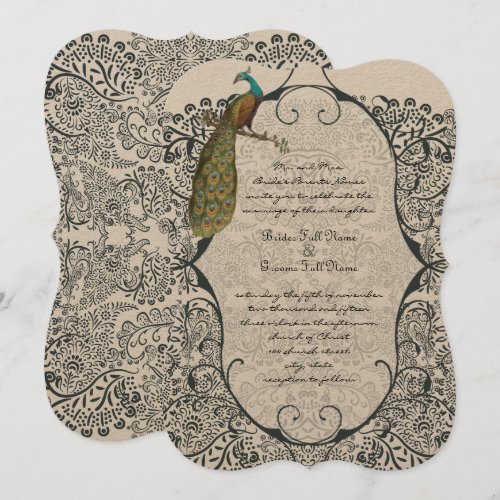 Mr. and Mrs.
Bride's Parents Names
invite you to celebrate the
marriage of their daughter
Brides Full Name
&
Grooms Full Name
saturday the fifth of november
two thousand and fifteen
three o'clock in the afternoon
church of Christ
100 church street
city, state
reception to follow